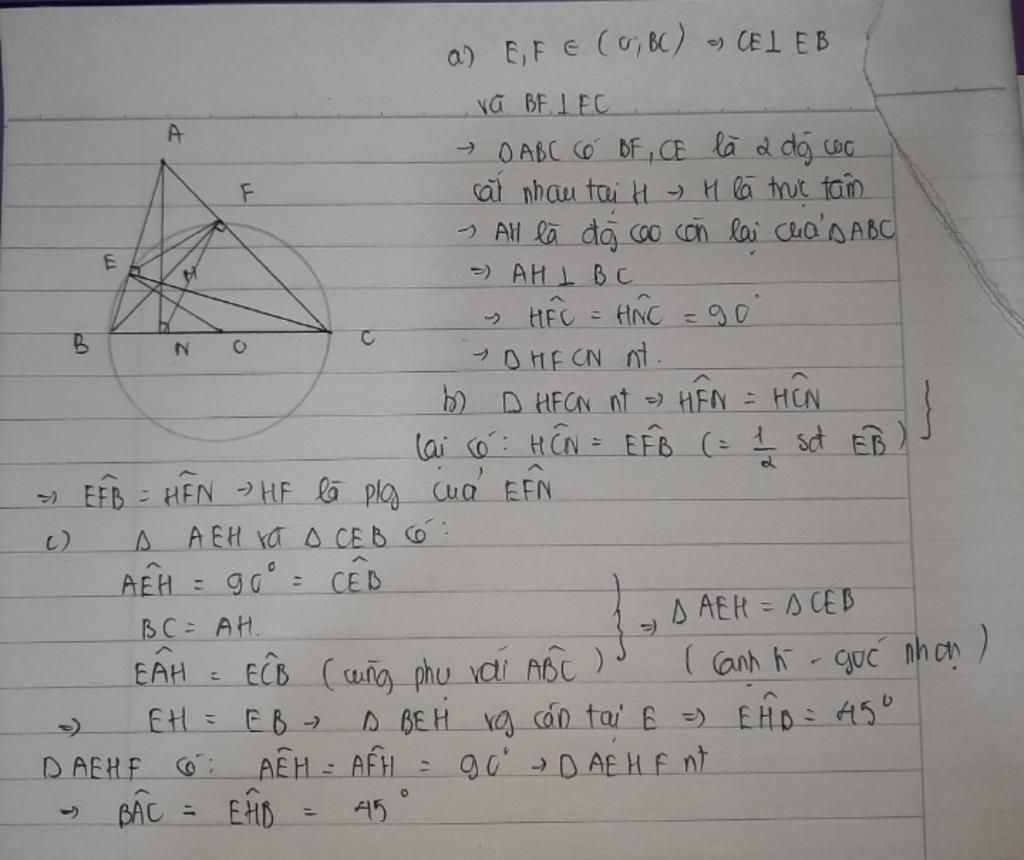 a) E, F ∈ (O; BC) ⇒ CE ⊥ EB
và BF ⊥ FC
→ ΔABC có BF, CE là 2 đg cao
cắt nhau tại H → H là trực tâm
→ AH là đg cao còn lại của ΔABC
⇒ AH ⊥ BC
→ HF̂C = HN̂C = 90°
→ D HFCN nt.
b) D HFCN nt ⇒ HF̂N = HĈN
Lại có: HĈN = EF̂B (= 1/2 sđ EB)
⇒ EF̂B = HF̂N → HF là plg của EF̂N
c) Δ AEH và Δ CEB có:
AÊH = 90° = CÊB
BC = AH.
EÂH = EĈB (cùng phụ với AB̂C)
⇒ Δ AEH = Δ CEB
(cạnh h - góc nhọn)
⇒ EH = EB → Δ BEH vg cân tại E ⇒ EĤB = 45°
D AEHF có: AÊH = AF̂H = 90° → D AEHF nt
→ BÂC = EĤB = 45°
A
F
E
H
B
N
O
C